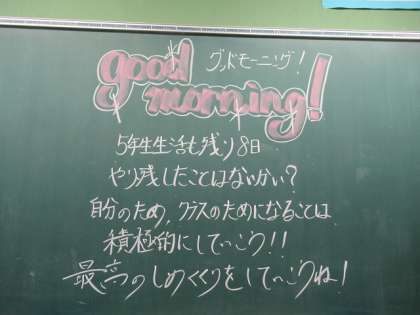 good グッドモーニング!
morning!
5年生生活も残り8日
やり残したことはないかい?
自分のため,クラスのためになることは
積極的にしてっこう!!
最高のしめくくりをしてっこうね!